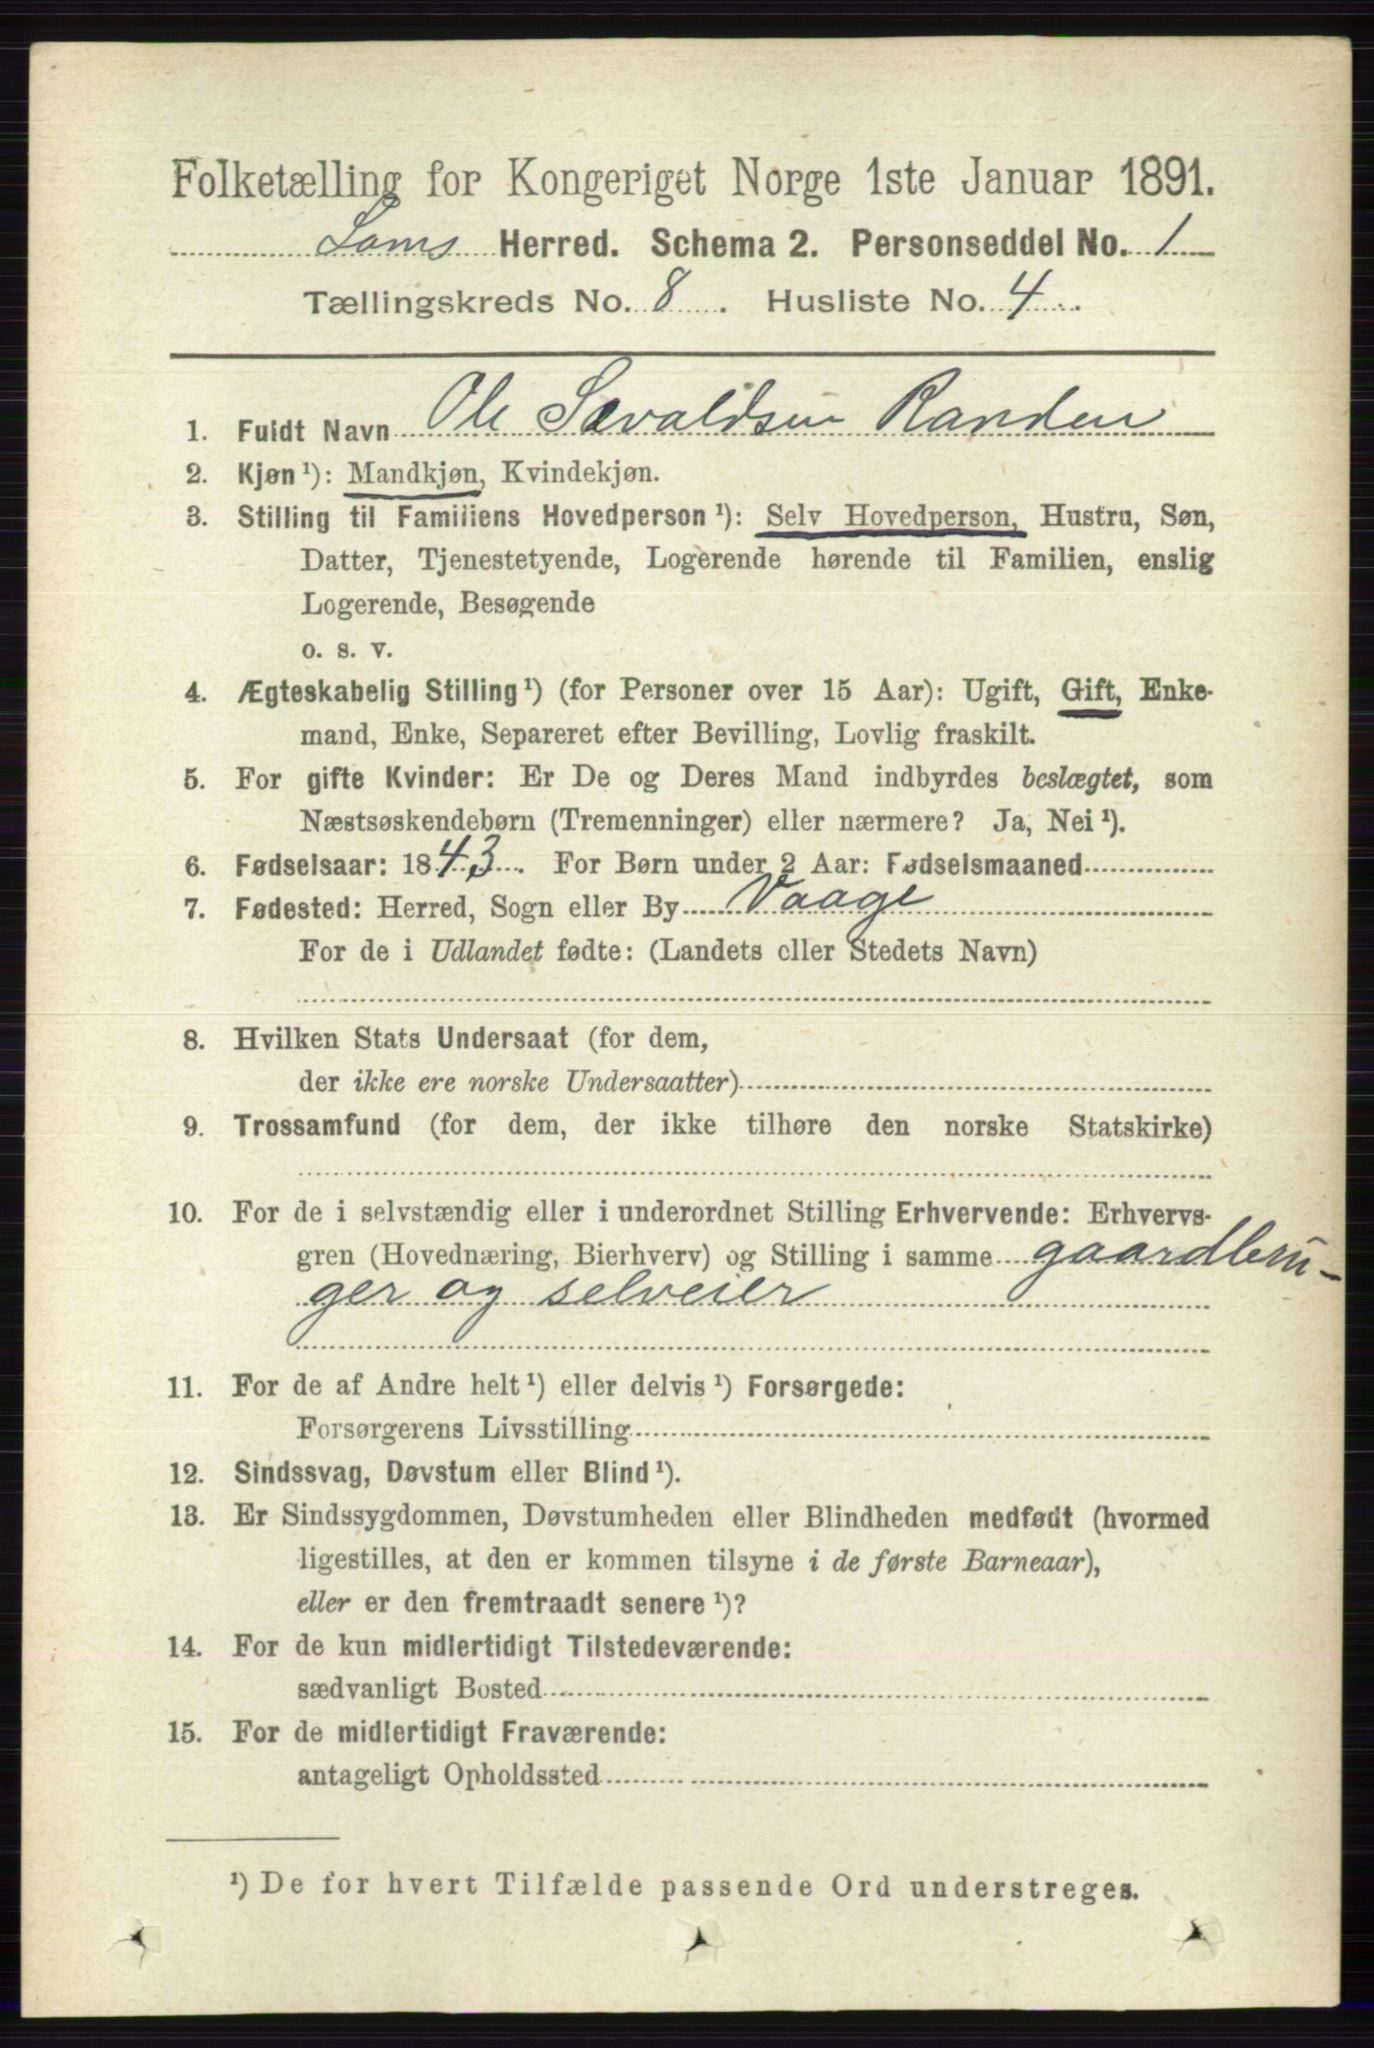 Folketælling for Kongeriget Norge 1ste Januar 1891.
Loms Herred. Schema 2. Personseddel No. 1
Tællingskreds No. 8. Husliste No. 4.
1. Fuldt Navn Ole Sævaldsen Randen
2. Kjøn¹): Mandkjøn, Kvindekjøn.
3. Stilling til Familiens Hovedperson¹): Selv Hovedperson, Hustru, Søn,
Datter, Tjenestetyende, Logerende hørende til Familien, enslig
Logerende, Besøgende
o. s. v.
4. Ægteskabelig Stilling¹) (for Personer over 15 Aar): Ugift, Gift, Enke-
mand, Enke, Separeret efter Bevilling, Lovlig fraskilt.
5. For gifte Kvinder: Er De og Deres Mand indbyrdes beslægtet, som
Næstsøskendebørn (Tremenninger) eller nærmere? Ja, Nei¹).
6. Fødselsaar: 1843. For Børn under 2 Aar: Fødselsmaaned
7. Fødested: Herred, Sogn eller By Vaage
For de i Udlandet fødte: (Landets eller Stedets Navn)
8. Hvilken Stats Undersaat (for dem,
der ikke ere norske Undersaatter)
9. Trossamfund (for dem, der ikke tilhøre den norske Statskirke)
10. For de i selvstændig eller i underordnet Stilling Erhvervende: Erhvervs-
gren (Hovednæring, Bierhverv) og Stilling i samme gaardbru-
ger og selveier
11. For de af Andre helt¹) eller delvis¹) Forsørgede:
Forsørgerens Livsstilling
12. Sindssvag, Døvstum eller Blind¹).
13. Er Sindssygdommen, Døvstumheden eller Blindheden medfødt (hvormed
ligestilles, at den er kommen tilsyne i de første Barneaar),
eller er den fremtraadt senere¹)?
14. For de kun midlertidigt Tilstedeværende:
sædvanligt Bosted
15. For de midlertidigt Fraværende:
antageligt Opholdssted
¹) De for hvert Tilfælde passende Ord understreges.